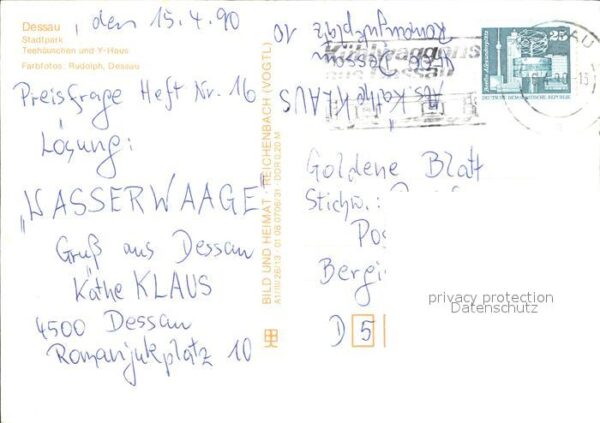 Dessau, den 15.4.90
Stadtpark
Teehäuschen und Y-Haus
Farbfotos: Rudolph, Dessau
Preisfrage Heft Nr. 16
Lösung:
„WASSERWAAGE"
Gruß aus Dessau
Käthe KLAUS
4500 Dessau
Romanjukplatz 10
BILD UND HEIMAT REICHENBACH (VOGTL)
A1/III/26/13 · 01 08 0706/31 · DDR 0,20 M
Abs. Käthe KLAUS
4500 Dessau
Romanjukplatz
10
Kühlwaggons
aus Dessau
25
DEUTSCHE DEMOKRATISCHE REPUBLIK
Goldene Blatt
Stichw.:
Pos
Bergi
D 5
privacy protection
Datenschutz